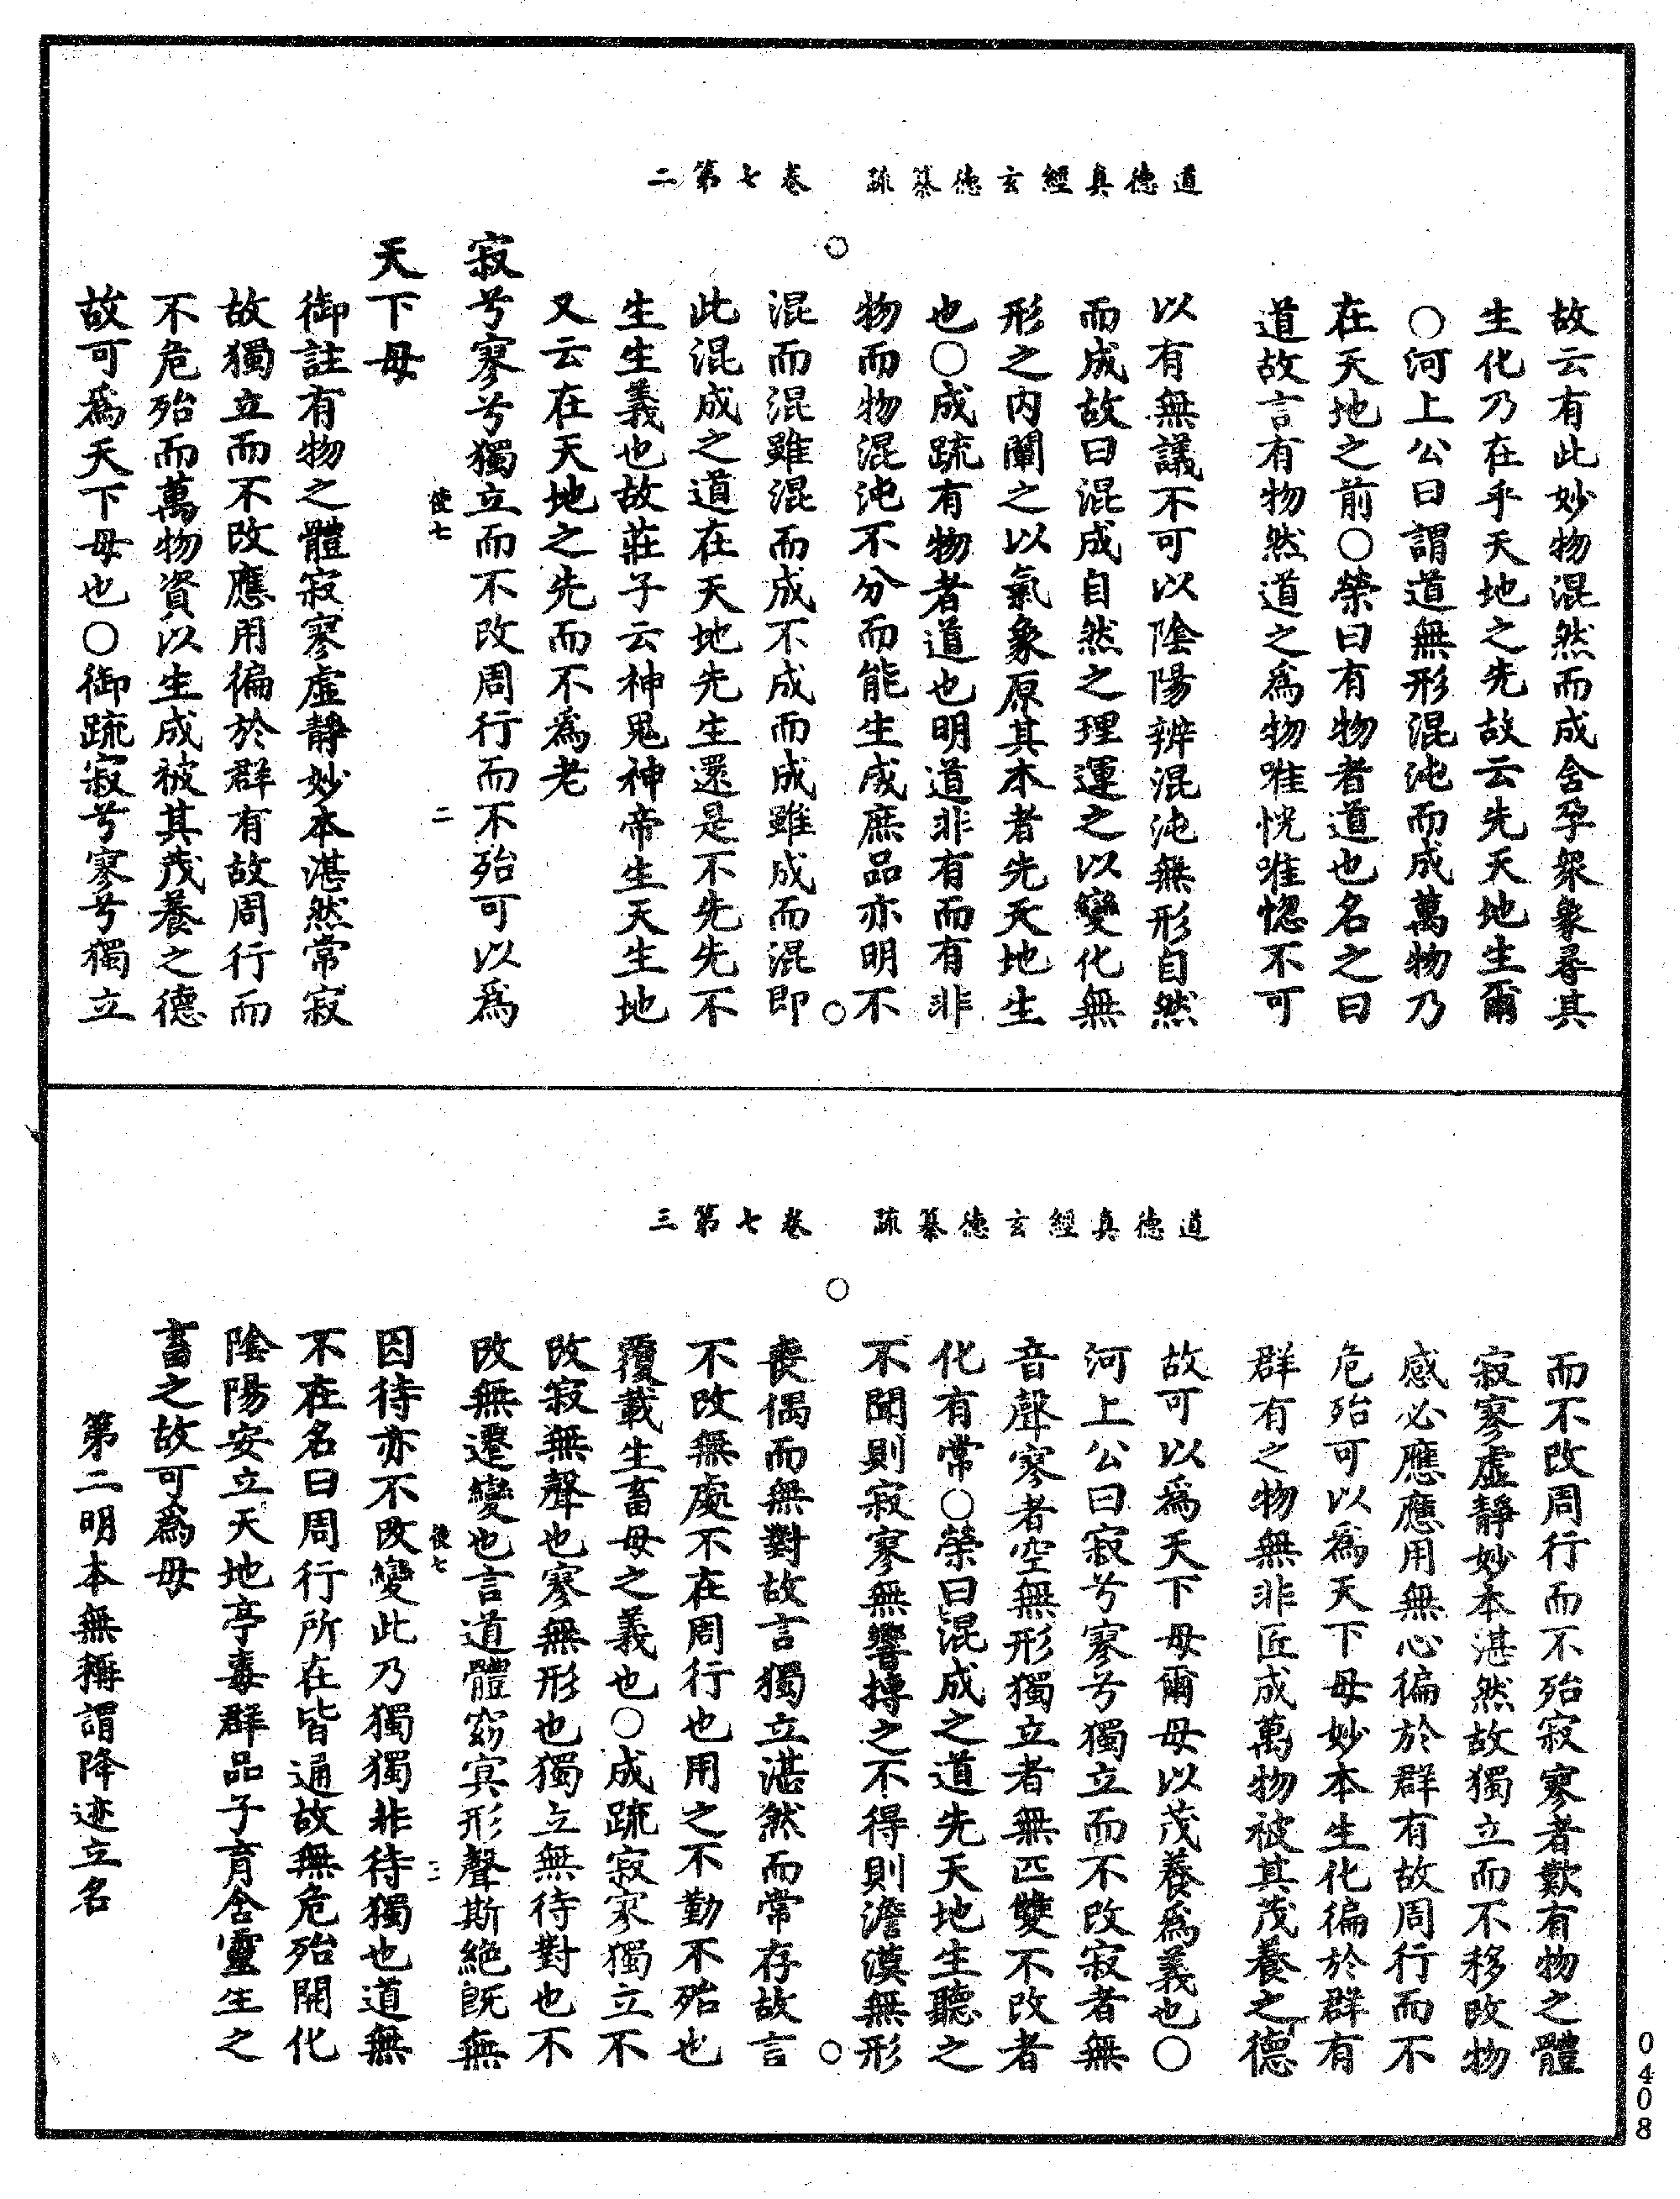 道德真經玄德纂疏　卷七第二
故云有此妙物混然而成含孕衆象尋其
生化乃在乎天地之先故云先天地生爾
○河上公曰謂道無形混沌而成萬物乃
在天地之前○榮曰有物者道也名之曰
道故言有物然道之為物唯恍唯惚不可
以有無議不可以陰陽辨混沌無形自然
而成故曰混成自然之理運之以變化無
形之內闡之以氣象原其本者先天地生
也○成疏有物者道也明道非有而有非
物而物混沌不分而能生成庶品亦明不
混而混雖混而成不成而成雖成而混即
此混成之道在天地先生還是不先先不
生生義也故莊子云神鬼神帝生天生地
又云在天地之先而不為老
寂兮寥兮獨立而不改周行而不殆可以爲
使七　二
天下母
御註有物之體寂寥虛靜妙本湛然常寂
故獨立而不改應用徧於群有故周行而
不危殆而萬物資以生成被其茂養之德
故可爲天下母也○御疏寂兮寥兮獨立
道德真經玄德纂疏　卷七第三
而不改周行而不殆寂寥者歎有物之體
寂寥虛靜妙本湛然故獨立而不移改物
感必應應用無心徧於群有故周行而不
危殆可以爲天下母妙本生化徧於群有
群有之物無非匠成萬物被其茂養之德
故可以爲天下母爾母以茂養爲義也○
河上公曰寂兮寥兮獨立而不改寂者無
音聲寥者空無形獨立者無匹雙不改者
化有常○榮曰混成之道先天地生聽之
不聞則寂寥無響搏之不得則澹漠無形
喪偶而無對故言獨立湛然而常存故言
不改無處不在周行也用之不勤不殆也
覆載生畜母之義也○成疏寂寥獨立不
改寂無聲也寥無形也獨立無待對也不
改無遷變也言道體窈冥形聲斯絕既無
使七　三
因待亦不改變此乃獨獨非待獨也道無
不在名曰周行所在皆通故無危殆開化
陰陽安立天地亭毒群品子育含靈生之
畜之故可爲母
第二明本無稱謂降迹立名
0408